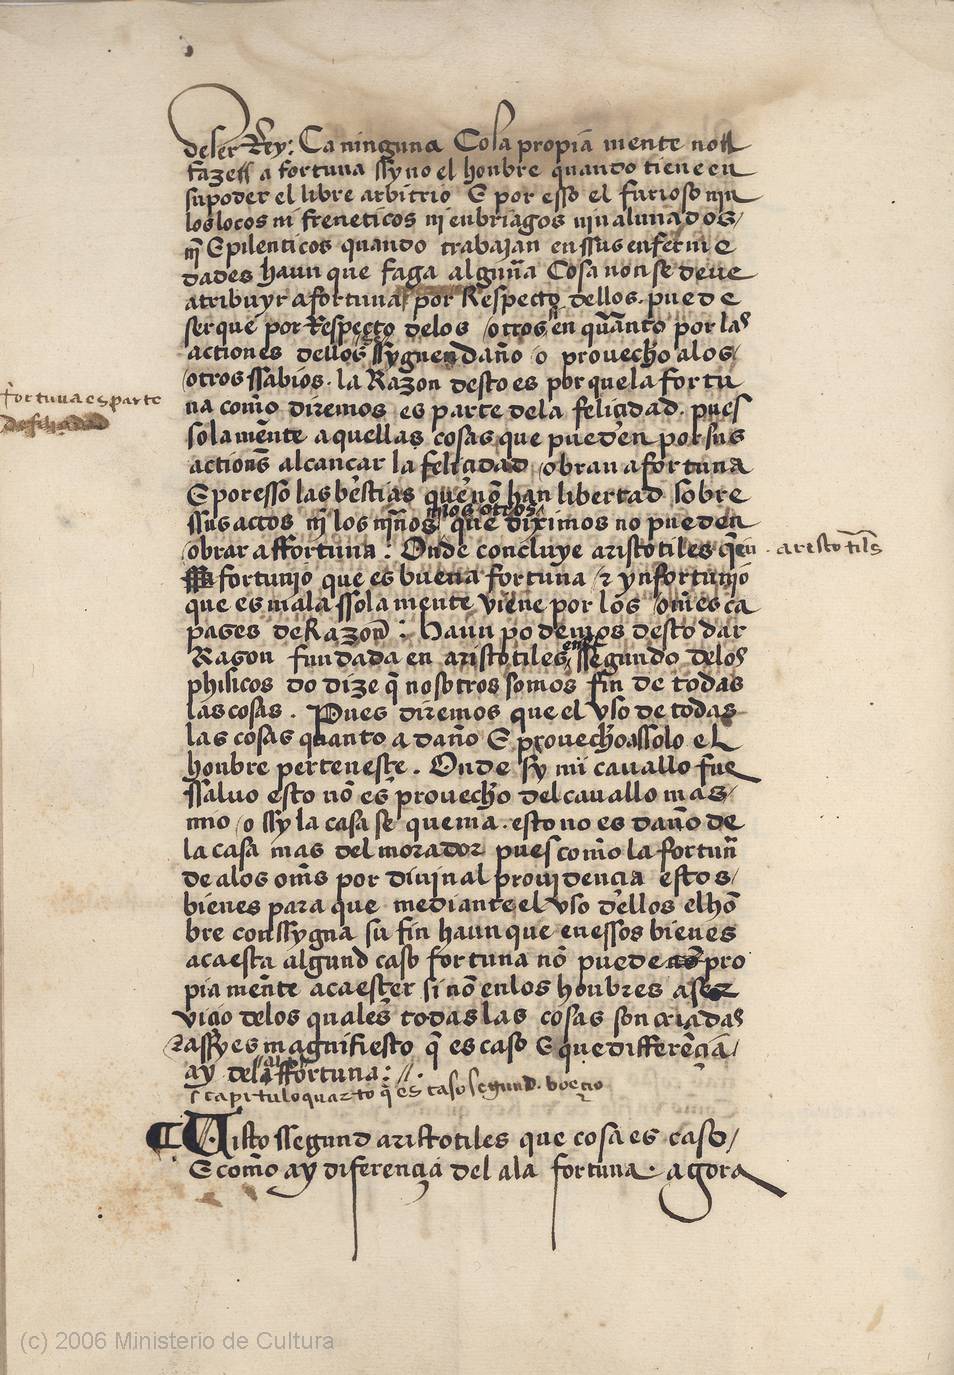 deser Rey: Ca ninguna Cosa propiamente non
faze a fortuna ssyno el honbre quando tiene en
su poder el libre arbitrio E por esso el furioso nin
los locos ni freneticos ni enbriagos nin alunados /
nĩ Epilenticos quando trabajan en ssus enferme
dades haun que faga algun̄a Cosa non se deve
atribuyr a fortuna por Respecto dellos. puede
ser que por Respecto delos / otros en quanto por las
actiones dellos ssyguen daño o provecho alos /
/ otros ssabios. la Razon desto es por que la fortu
na com̄o diremos es parte dela feliçidad. pues
sola mēnte aquellas cosas que pueden por sus
action̄s alcançar la feliçidad / obran a fortuna
E por esso las bēstias que nō han libertad sobre
ssus actos nī los niños / nios otros / que diximos no pueden
/ obrar affortuna : Onde concluye aristotiles q̄ en
fortunio que es buena fortuna / ⁊ ynfortunio
que es mala ssola mente viene por los / om̄es ca
paçes de Razon̄ : Haun podemos desto dar
Rason fundada en aristotiles / enel ssegundo delos
phisicos do dize q̄ nosotros somos fin de todas
las cosas . Pues diremos que el vso de todas
las cosas quanto a daño E provecho assolo el
honbre perteneste . Onde sy mi cavallo fue
ssalvo esto nō es provecho del cavallo mas /
mio / o ssy la casa se quema . esto no es daño de
la casa mas del morador pues com̄o la fortun̄
de alos om̄s por divinal providencia estos /
bienes para que mediante el vso dellos el hō
bre conssygna su fin haun que en essos bienes
acaesta algund caso fortuna nō puede pro
pia mēnte acaesçer si nō en los honbres a ser
viçio delos quales todas las cosas son criadas
⁊ assy es magnifiesto q̄ es caso E que differēçia /
ay del affortuna : //.
capitulo quarto q̄ es caso segund . boeçio
¶ Uisto ssegund aristotiles que cosa es caso /
E com̄o ay diferençia del ala fortuna . agora
fortuna es parte
de feliçidad
aristotil̄s
(c) 2006 Ministerio de Cultura